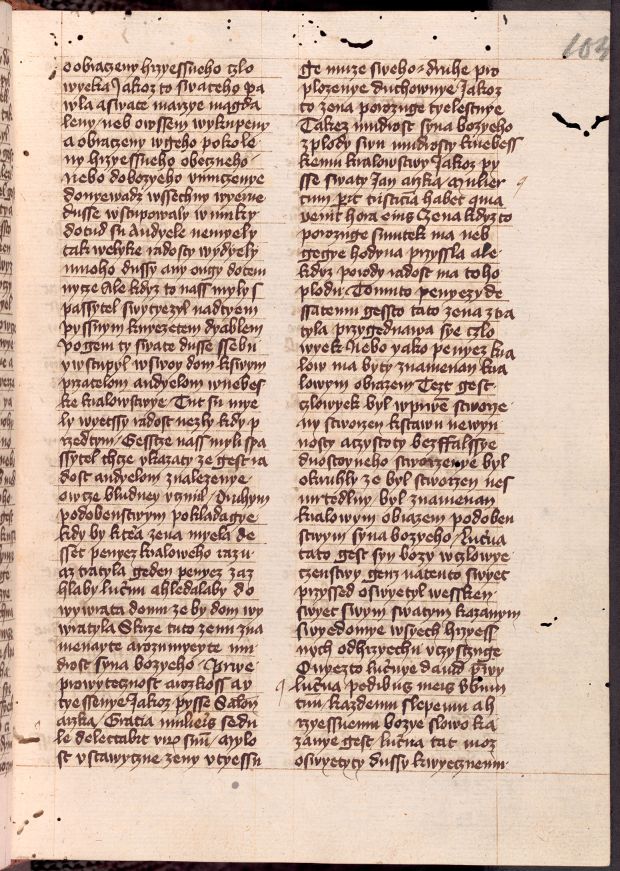 103
oobraczeny hrzyessneho czlo
wyeka Jakoz to swateho pa
wla aswate marzye magda
leny neb owssem wykupeny
a obraczeny wgeho pokole
ny hrzyessneho obeczneho
nebo dobozyeho vmuczenye
donyewadz wssechny wyerne
dusse wstupowaly wmuky
dotud su Andyele nemyely
tak welyke radosty wydyely
mnoho dussy any ongy dotem
nycze Ale kdyz to nass myly s
passytel swytyezyl nadtyem
pyssnym knyezetem dyablem
pogem ty swate dusse ssebu
vwstupyl wswoy dom kswym
przatelom andyelom wnebes
ke kralowstwye Tut su mye
ly wyetssy radost nezly kdy p
rzedtym Gesstze nass myli spa
ssytel chcze vkazaty ze gest ra
dost andyelom znalezenye
owcze bludney vczinil Druhym
podobenstwym pokladagye
kdy by ktera zena myela de
sset penyez kraloweho razu
az tratyla geden penyez zaz
hlaby luczim ahledalaby do
wywrata domu ze by dom wy
wratyla Skrze tuto zenu zna
menayte arozumyeyte mu
drost syna bozyeho Prwe
prowytecznost arozkoss a v
tyessenye Jakoz pysse Salon
arzka Gracia mulieris sedu
le delectabit viro suu mylo
st vstawyczne zeny vtyessu
ge muze sweho druhe pro
plozenye duchownye Jakoz
to zena porozuge tyelestnye
Takez mudrost syna bozyeho
zplody swu mudrosty knebess
kemu kralowstwy Jakoz py
sse swaty Jan arzka Mulier
cum perit tristicia habet qua
venit hora eius Czena kdyz to
porozuge smutek ma neb
gegye hodyna przyssla ale
kdyz porody radost ma toho
plodu Tomuto penyezy de
ssatemu gessto tato zena ztra
tyla przygednawa sye czlo
wyek Nebo yako penyez kra
low ma byty znamenan kra
lowym obrazem Tezt gest
czlowyek byl wprwe stworze
ny stworzen kstawu newyn
nosty aczystoty bezffalssye
duostoyneho stworzenye byl
okruhly ze byl stworzen nes
mrtedlny byl znamenan
kralowym obrazem podoben
stwym syna bozyeho Lucerna
tato gest syn bozy wczlowye
czenstwy genz natento swyet
przyssed oswyetyl wessken
swyet swym swatym kazanym
swedomye wsyech hrzyess
nych odhrzyechu vczystuge
Onyezto luczrnye dauid prawy
lucerna pedibus meis verbum
tuu kazdemu slepemu ah
rzyessnemu bozye slowo ka
zanye gest lucerna tat moz
oswyetyty dussy kwyecznemu